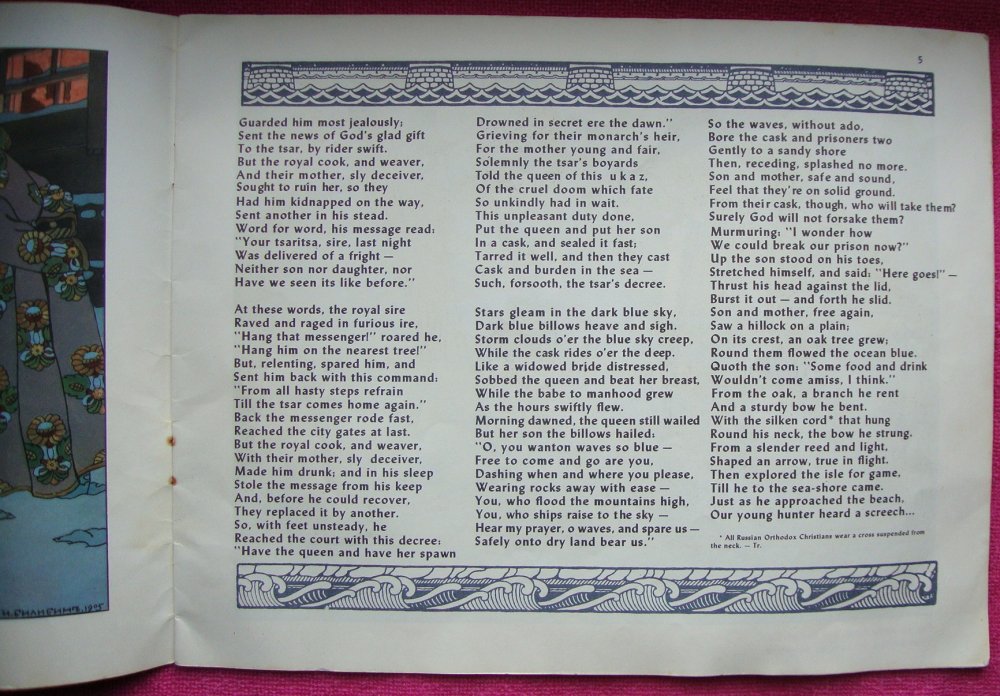 5
Guarded him most jealously;
Sent the news of God's glad gift
To the tsar, by rider swift.
But the royal cook, and weaver,
And their mother, sly deceiver,
Sought to ruin her, so they
Had him kidnapped on the way,
Sent another in his stead.
Word for word, his message read:
"Your tsaritsa, sire, last night
Was delivered of a fright —
Neither son nor daughter, nor
Have we seen its like before."
At these words, the royal sire
Raved and raged in furious ire,
"Hang that messenger!" roared he,
"Hang him on the nearest tree!"
But, relenting, spared him, and
Sent him back with this command:
"From all hasty steps refrain
Till the tsar comes home again."
Back the messenger rode fast,
Reached the city gates at last.
But the royal cook, and weaver,
With their mother, sly deceiver,
Made him drunk; and in his sleep
Stole the message from his keep
And, before he could recover,
They replaced it by another.
So, with feet unsteady, he
Reached the court with this decree:
"Have the queen and have her spawn
Drowned in secret ere the dawn."
Grieving for their monarch's heir,
For the mother young and fair,
Solemnly the tsar's boyards
Told the queen of this u k a z,
Of the cruel doom which fate
So unkindly had in wait.
This unpleasant duty done,
Put the queen and put her son
In a cask, and sealed it fast;
Tarred it well, and then they cast
Cask and burden in the sea —
Such, forsooth, the tsar's decree.
Stars gleam in the dark blue sky,
Dark blue billows heave and sigh.
Storm clouds o'er the blue sky creep,
While the cask rides o'er the deep.
Like a widowed bride distressed,
Sobbed the queen and beat her breast,
While the babe to manhood grew
As the hours swiftly flew.
Morning dawned, the queen still wailed
But her son the billows hailed:
"O, you wanton waves so blue —
Free to come and go are you,
Dashing when and where you please,
Wearing rocks away with ease —
You, who flood the mountains high,
You, who ships raise to the sky —
Hear my prayer, o waves, and spare us —
Safely onto dry land bear us."
So the waves, without ado,
Bore the cask and prisoners two
Gently to a sandy shore
Then, receding, splashed no more.
Son and mother, safe and sound,
Feel that they're on solid ground.
From their cask, though, who will take them?
Surely God will not forsake them?
Murmuring: "I wonder how
We could break our prison now?"
Up the son stood on his toes,
Stretched himself, and said: "Here goes!" —
Thrust his head against the lid,
Burst it out — and forth he slid.
Son and mother, free again,
Saw a hillock on a plain;
On its crest, an oak tree grew;
Round them flowed the ocean blue.
Quoth the son: "Some food and drink
Wouldn't come amiss, I think."
From the oak, a branch he rent
And a sturdy bow he bent.
With the silken cord* that hung
Round his neck, the bow he strung.
From a slender reed and light,
Shaped an arrow, true in flight.
Then explored the isle for game,
Till he to the sea-shore came.
Just as he approached the beach,
Our young hunter heard a screech...
* All Russian Orthodox Christians wear a cross suspended from
the neck. — Tr.
И. БИЛИБИНЪ. 1905